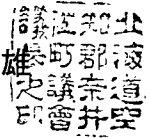 北海道空
知郡奈井
江町議會
議長之印
雄